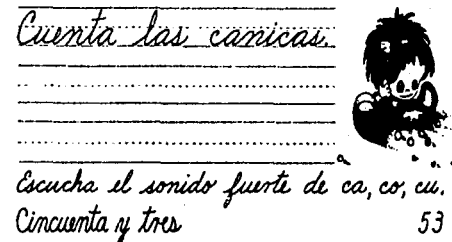 Cuenta las canicas.
Escucha el sonido fuerte de ca, co, cu.
Cincuenta y tres 53